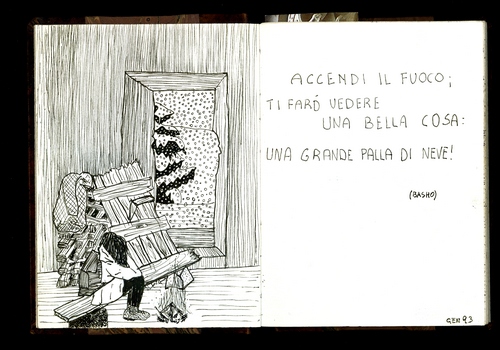 ACCENDI IL FUOCO;
TI FARÓ VEDERE
UNA BELLA COSA:
UNA GRANDE PALLA DI NEVE!
(BASHO)
GEN 93